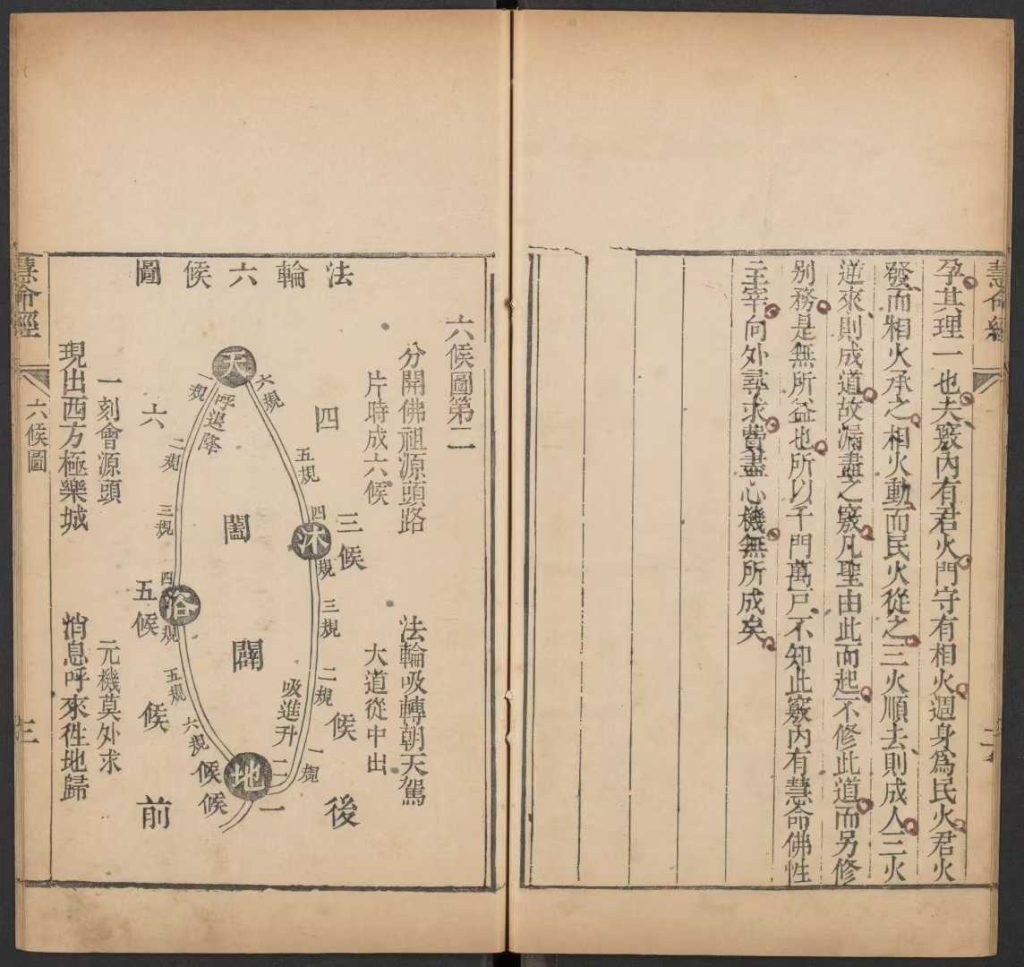 慧命經
孕其理一也夫竅內有君火門守有相火週身為民火君火
發而相火承之相火動而民火從之三火順去則成人三火
逆來則成道故漏盡之竅凡聖由此而起不修此道而另修
別務是無所益也所以千門萬戶不知此竅內有慧命佛性
主宰向外尋求費盡心機無所成矣
六候圖第二
分開佛祖源頭路
法輪吸轉朝天駕
片時成六候
大道從中出
法輪六候圖
天
六規
五規
四規
沐
三規
二規
一規
吸進升
地
一規
二規
三規
四規
浴
五規
六規
呼退降
闔
闢
四候
三候
六候
五候
二候
一候
後
前
一刻會源頭
元機莫外求
現出西方極樂城
消息呼來徃地歸
慧命經
六候圖
三